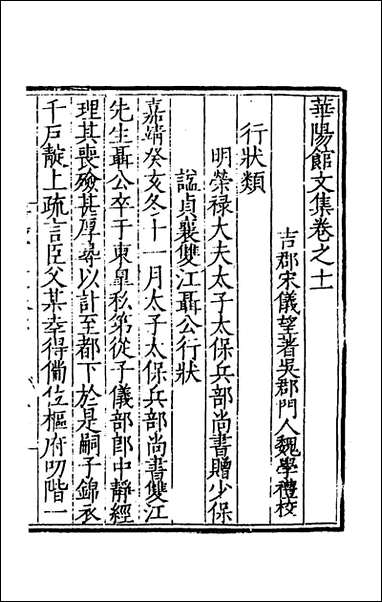 華陽館文集卷之十一
吉郡宋儀望著吳郡門人魏學禮校
行狀類
明榮祿大夫太子太保兵部尚書贈少保
諡貞襄雙江聶公行狀
嘉靖癸亥冬十一月太子太保兵部尚書雙江
先生聶公卒于東皐私第從子儀部郎中靜經
理其喪殮甚厚尋以訃至都下於是嗣子錦衣
千戶靛上疏言臣父某幸得備位樞府叨階一